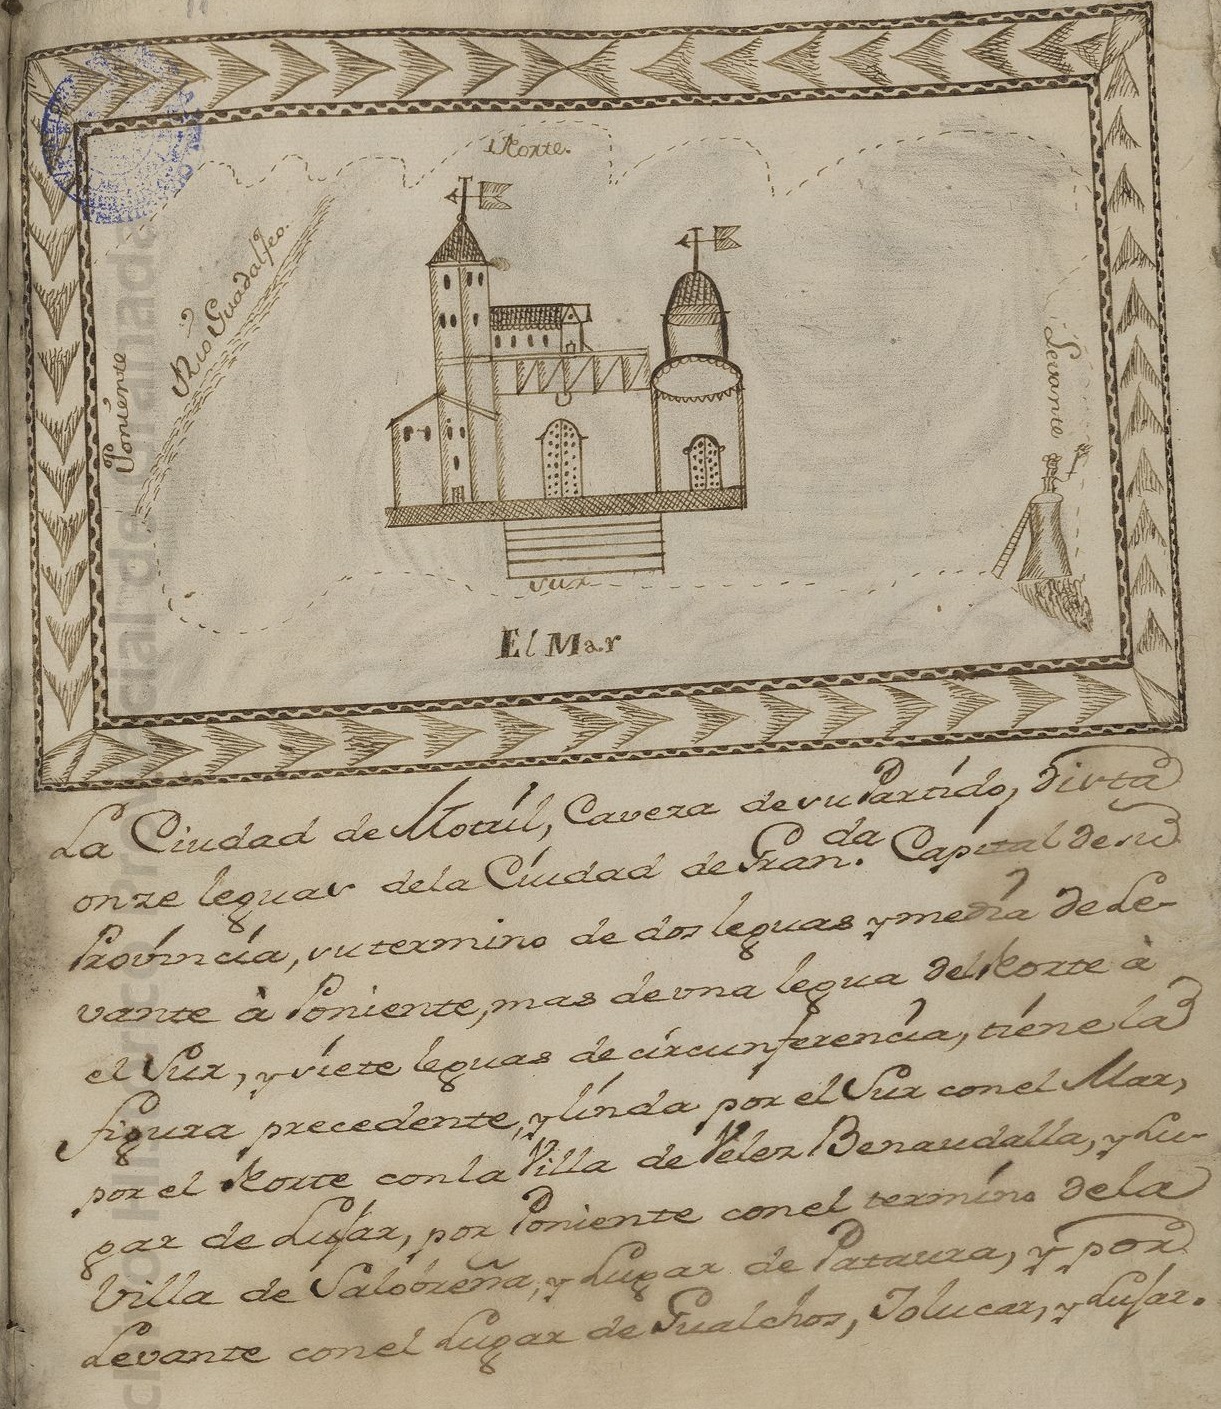 Norte.
Rio Guadalfeo.
Poniente
Levante
sur
El Mar
La Ciudad de Motril, Caveza de su Partido, dista
onze leguas dela Ciudad de Gran.da Capital de su
Provincia, su termino de dos leguas y media de Le-
vante à Poniente, mas de vna legua del Norte à
el Sur, y siete leguas de circunferencia, tiene la
figura precedente, y linda por el Sur con el Mar,
por el Norte con la Villa de Velez Benaudalla, y Lu-
gar de Lujar, por Poniente con el termino dela
Villa de Salobreña, y Lugar de Pataura, y por
Levante con el Lugar de Gualchos, Jolucar, y Lujar.